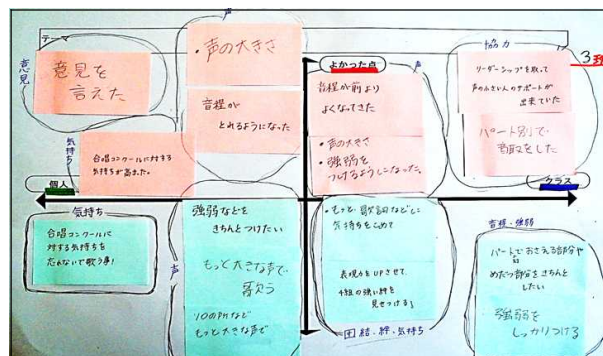 テーマ
声
意見
意見を
言えた
・声の大きさ
音程が
とれるようになった
気持ち
合唱コンクールに対する
気持ちが高まった。
よかった点
声
音程が前より
よくなってきた
・声の大きさ
・強弱を
つけるようになった。
協力
3班
リーダーシップを取って
声の小さい人のサポートが
出来ていた
パート別で
をした
個人
クラス
気持ち
合唱コンクールに
対する気持ちを
忘れないで歌う事!
声
強弱などを
きちんとつけたい
もっと大きな声で
歌う
もっと大きな声で
・もっと歌詞などに
気持ちをこめて
表現力をUPさせて、
4組の強い絆を
見せつける
団結、絆、気持ち
音程、強弱
パートでおさえる部分や
めだつ部分をきちんと
したい
強弱を
しっかりつける